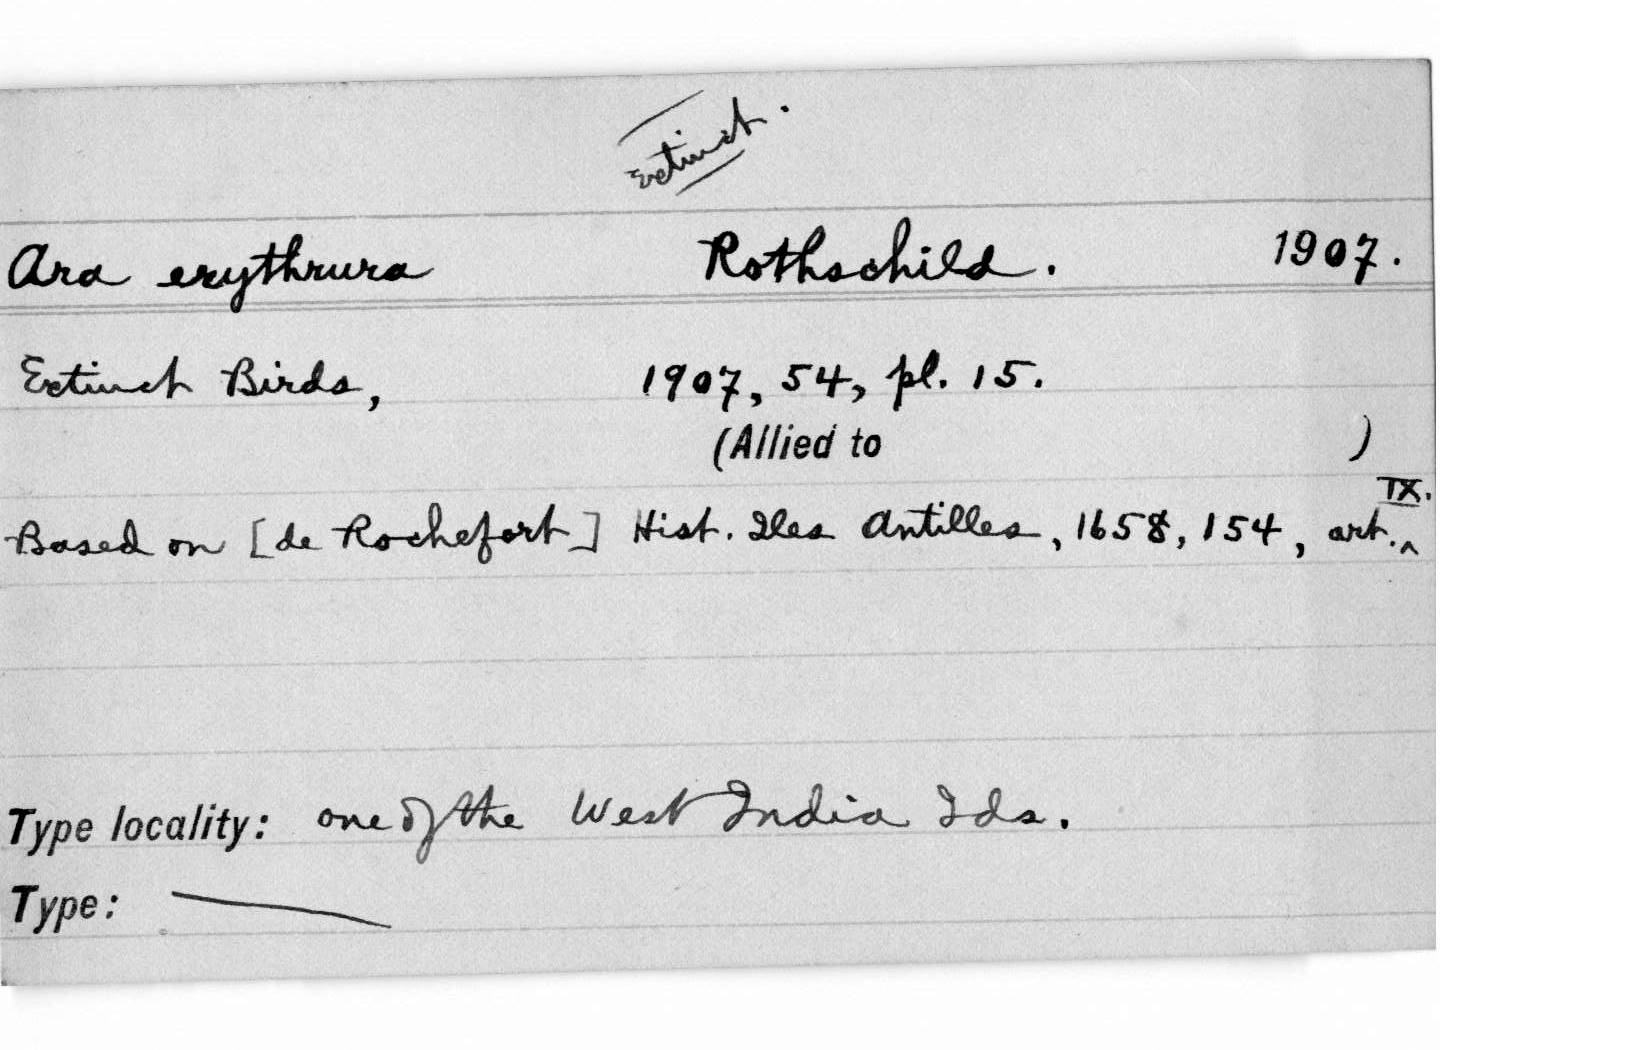 Extinct.
Ara erythrura Rothschild. 1907.
Extinct Birds, 1907, 54, pl. 15.
(Allied to )
Based on [de Rochefort] Hist. Iles Antilles, 1658, 154, art. ^ IX.
Type locality: one of the West India Ids.
Type: —